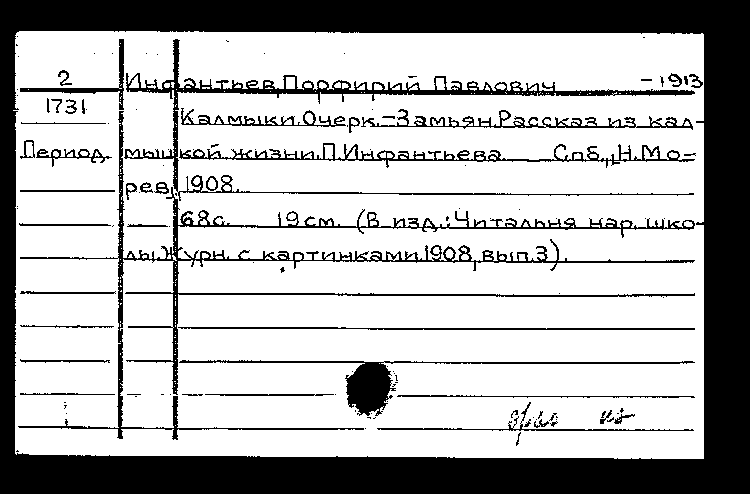 2 Инфантьев, Порфирий Павлович -1913
1731 Калмыки. Очерк.-Замьян. Рассказ из кал-
Период. мыцкой жизни. П. Инфантьева. Спб., Н. Мо-
рев, 1908.
68с. 19см. (В изд.: Читальня нар. шко-
лы. Журн. с картинками. 1908, вып. 3).